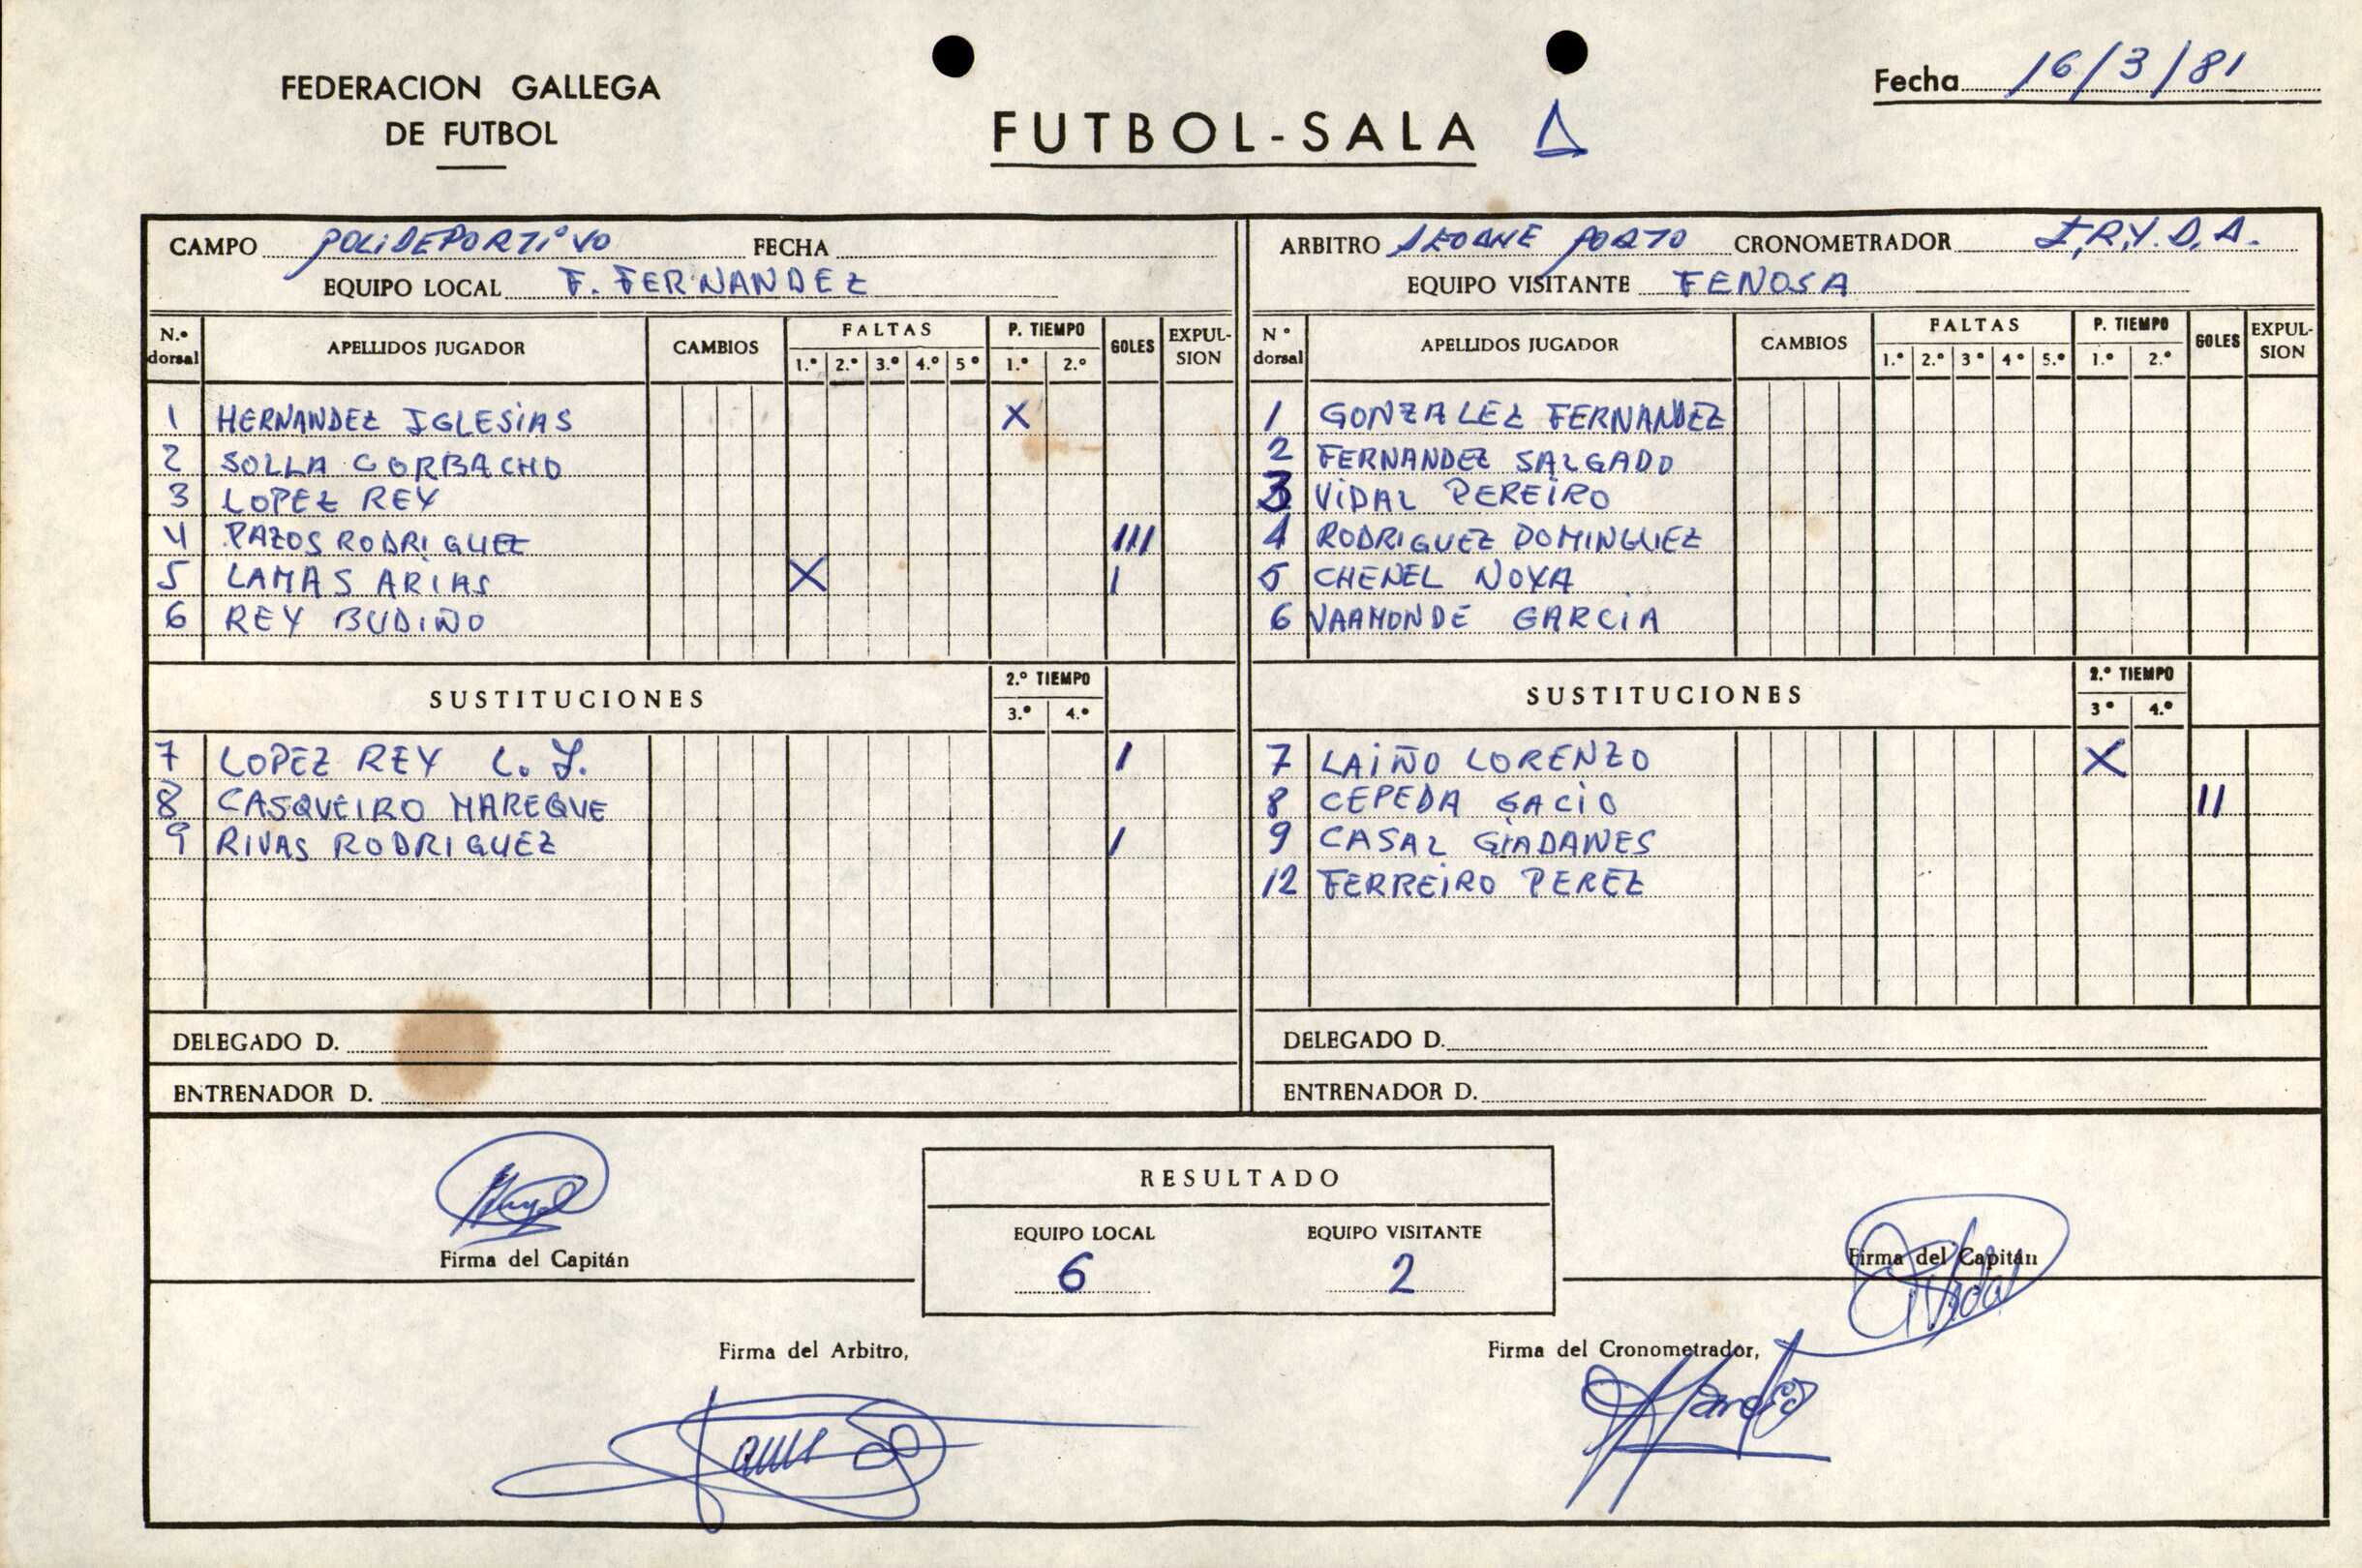 FEDERACION GALLEGA
DE FUTBOL
FUTBOL-SALA
Fecha 16/3/81
CAMPO POLIDEPORTIVO FECHA
EQUIPO LOCAL F. FERNANDEZ
ARBITRO SEOANE PORTO CRONOMETRADOR I.R.Y.D.A.
EQUIPO VISITANTE FENOSA
N.º dorsal APELLIDOS JUGADOR CAMBIOS FALTAS 1.º 2.º 3.º 4.º 5º P. TIEMPO 1.º 2.º GOLES EXPULSION
1 HERNANDEZ IGLESIAS X
2 SOLLA CORBACHO
3 LOPEZ REY
4 PAZOS RODRIGUEZ III
5 LAMAS ARIAS X I
6 REY BUDIÑO
SUSTITUCIONES 2.º TIEMPO 3.º 4.º
7 LOPEZ REY L. J. I
8 CASQUEIRO MAREQUE
9 RIVAS RODRIGUEZ I
DELEGADO D.
ENTRENADOR D.
Nº dorsal APELLIDOS JUGADOR CAMBIOS FALTAS 1.º 2.º 3º 4º 5.º P. TIEMPO 1.º 2.º GOLES EXPULSION
1 GONZALEZ FERNANDEZ
2 FERNANDEZ SALGADO
3 VIDAL PEREIRO
4 RODRIGUEZ DOMINGUEZ
5 CHENEL NOYA
6 VAAMONDE GARCIA
SUSTITUCIONES 2.º TIEMPO 3º 4.º
7 LAIÑO LORENZO X
8 CEPEDA GACIO II
9 CASAL GIADANES
12 FERREIRO PEREZ
DELEGADO D.
ENTRENADOR D.
RESULTADO
EQUIPO LOCAL EQUIPO VISITANTE
6 2
Firma del Capitán
Firma del Capitán
Firma del Arbitro,
Firma del Cronometrador,